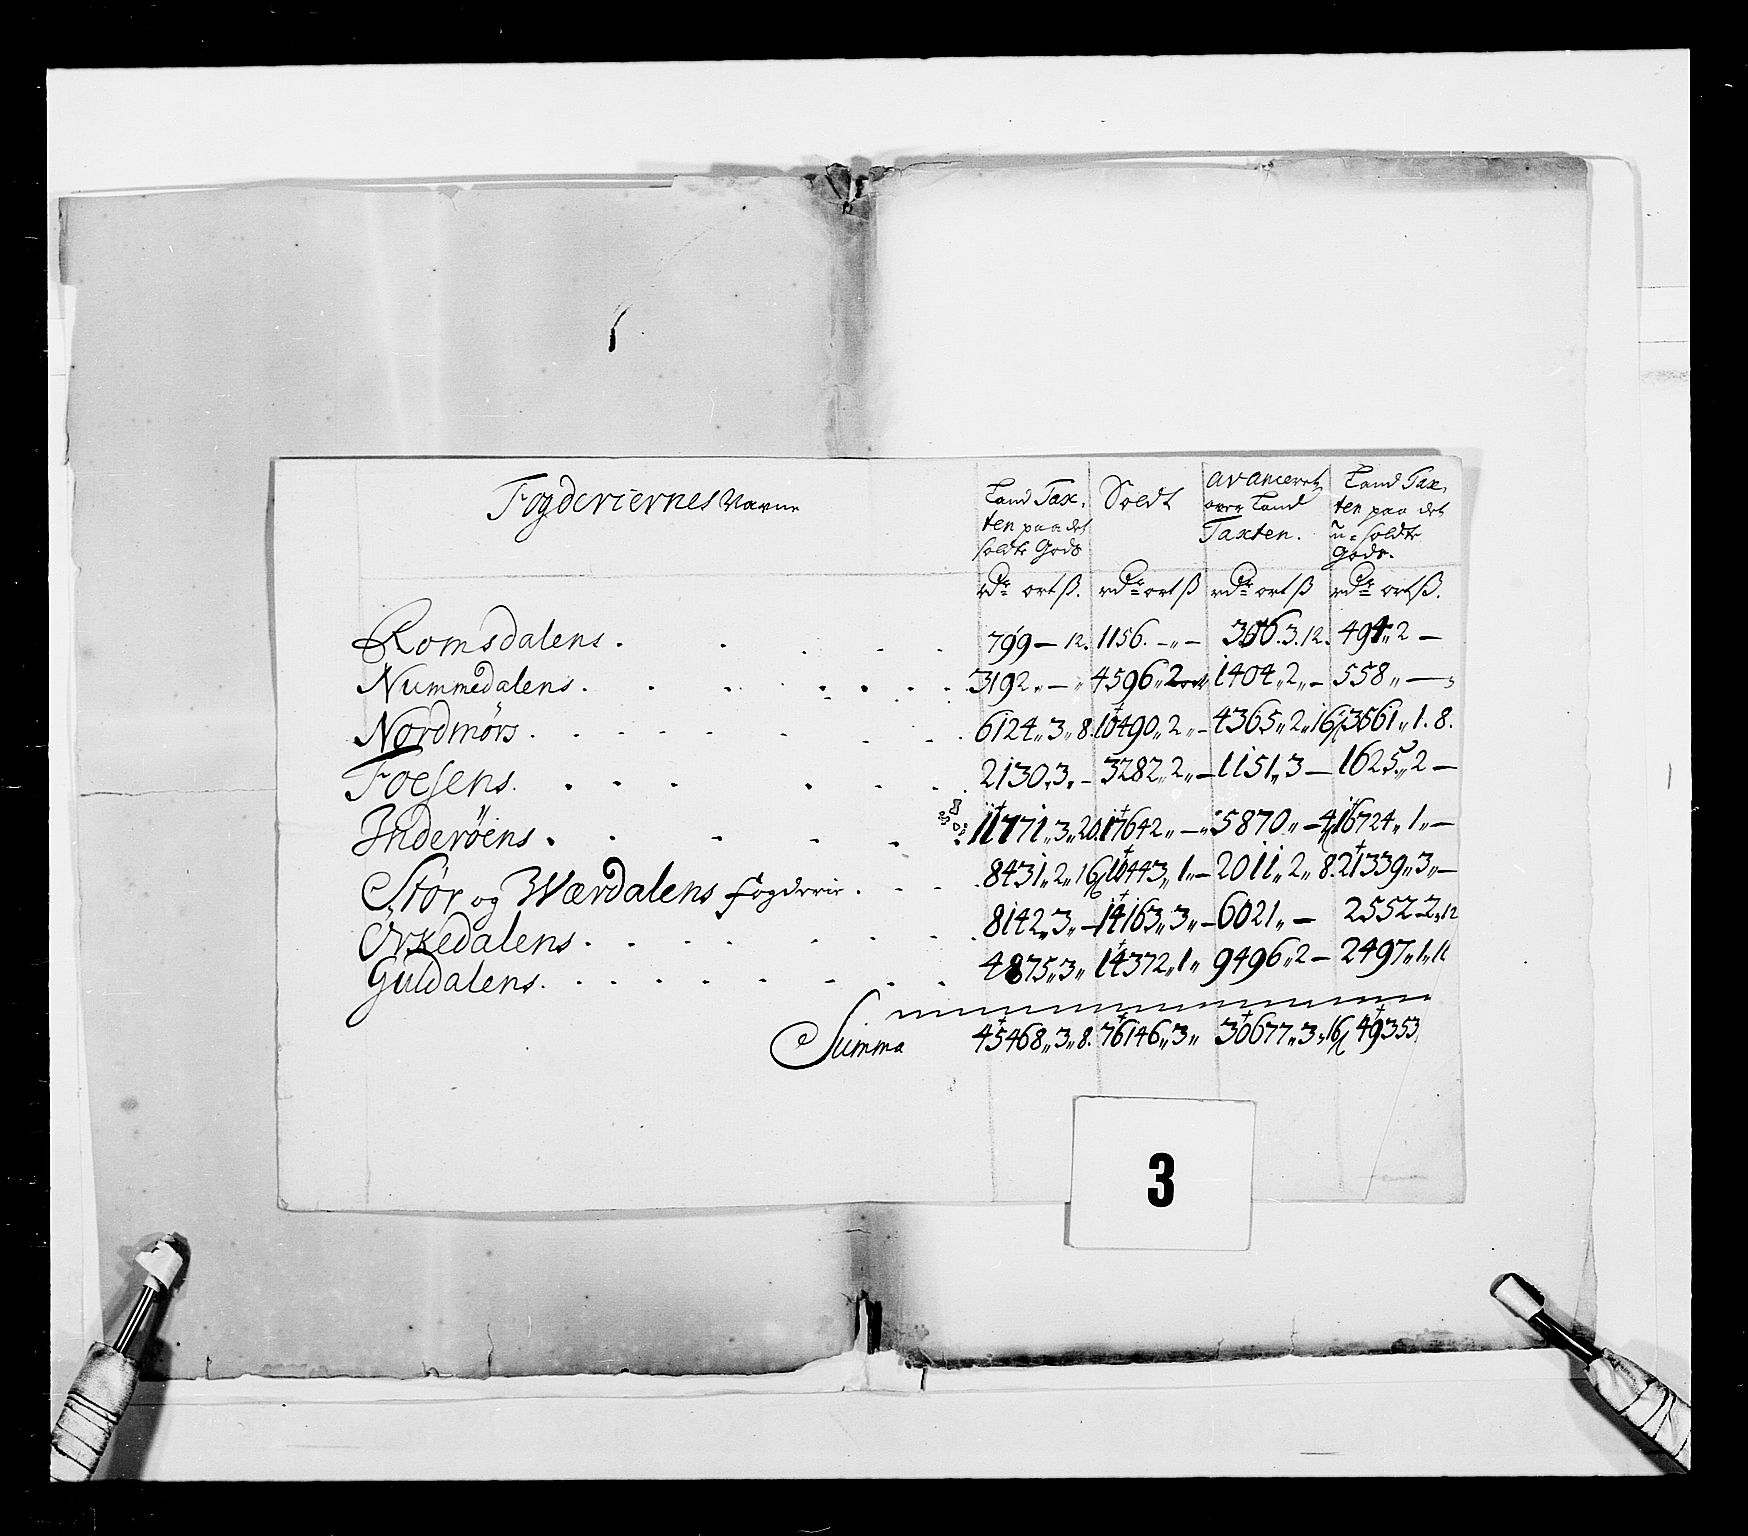 Fogderiernes Navne
Land Tax, ten paa det soldte Gods
Soldt
avanceret over Land Taxten.
Land Tax, ten paa det u-soldte Gods.
rdr ort ß. rdr ort ß rdr ort ß rdr ort ß.
Romsdalens . 799 — 12. 1156. -„- 356.3.12. 494„2 —
Nummedalens . 3192„ — „ 4596„2 1404„2„- 558„ —
Nordmørs . 6124„3„8. 10490„2„- 4365„2„16 3561„1.8.
Foesens . 2130.3.- 3282„2„- 1151„3 — 1625„2 —
Inderøens . 11771„3„20. 17642„ — „ 5870„ — 4 16724„1„—
Stør og Wærdalens fogderie . 8431„2„16 10443„1„- 2011„2„8. 21339„3„—
Ørkedalens . 8142„3„- 14163„3„- 6021„ — 2552-2„12
Guldalens . 4875„3„ 14372„1„ 9496„2 — 2497„1„11
Summa 45468„3„8. 76146„3„ 30677„3„16 49353
3